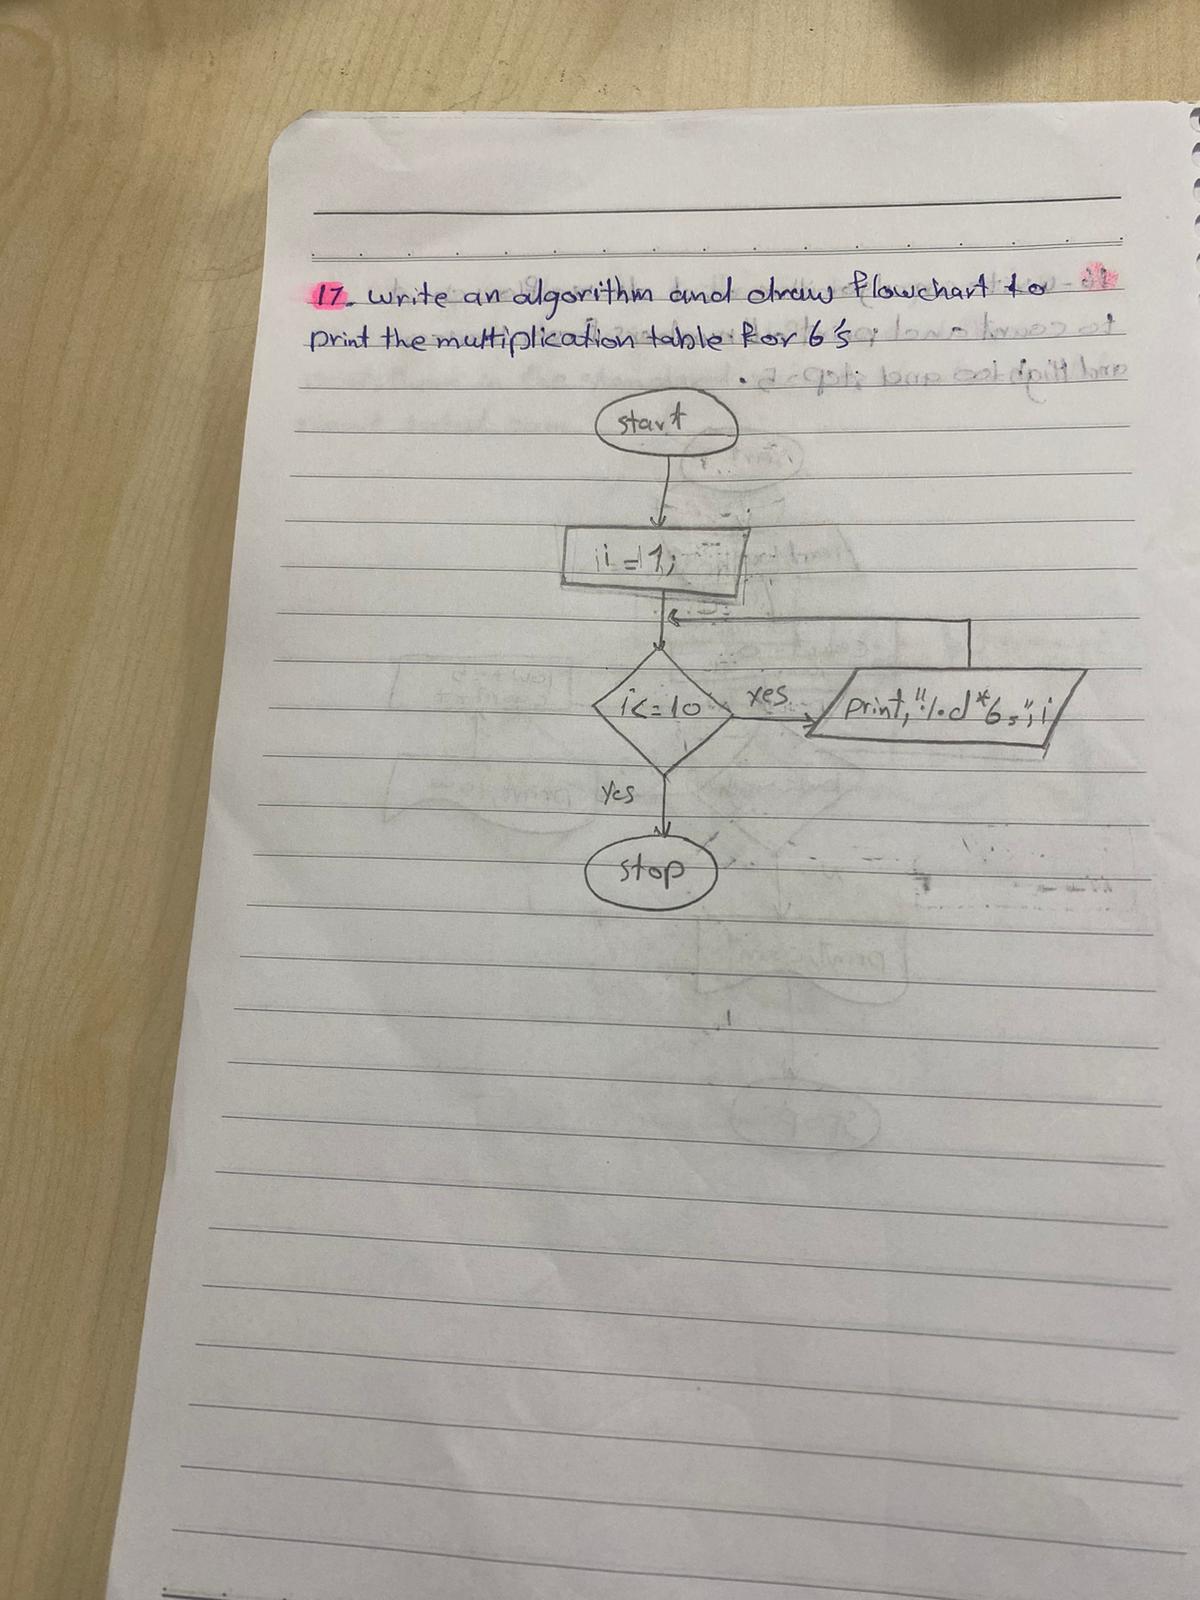 17. Write an algorithm and draw flowchart to
print the multiplication table for 6's;
start
i=1;
i<=10
yes
print,"%d*6=",i
Yes
stop